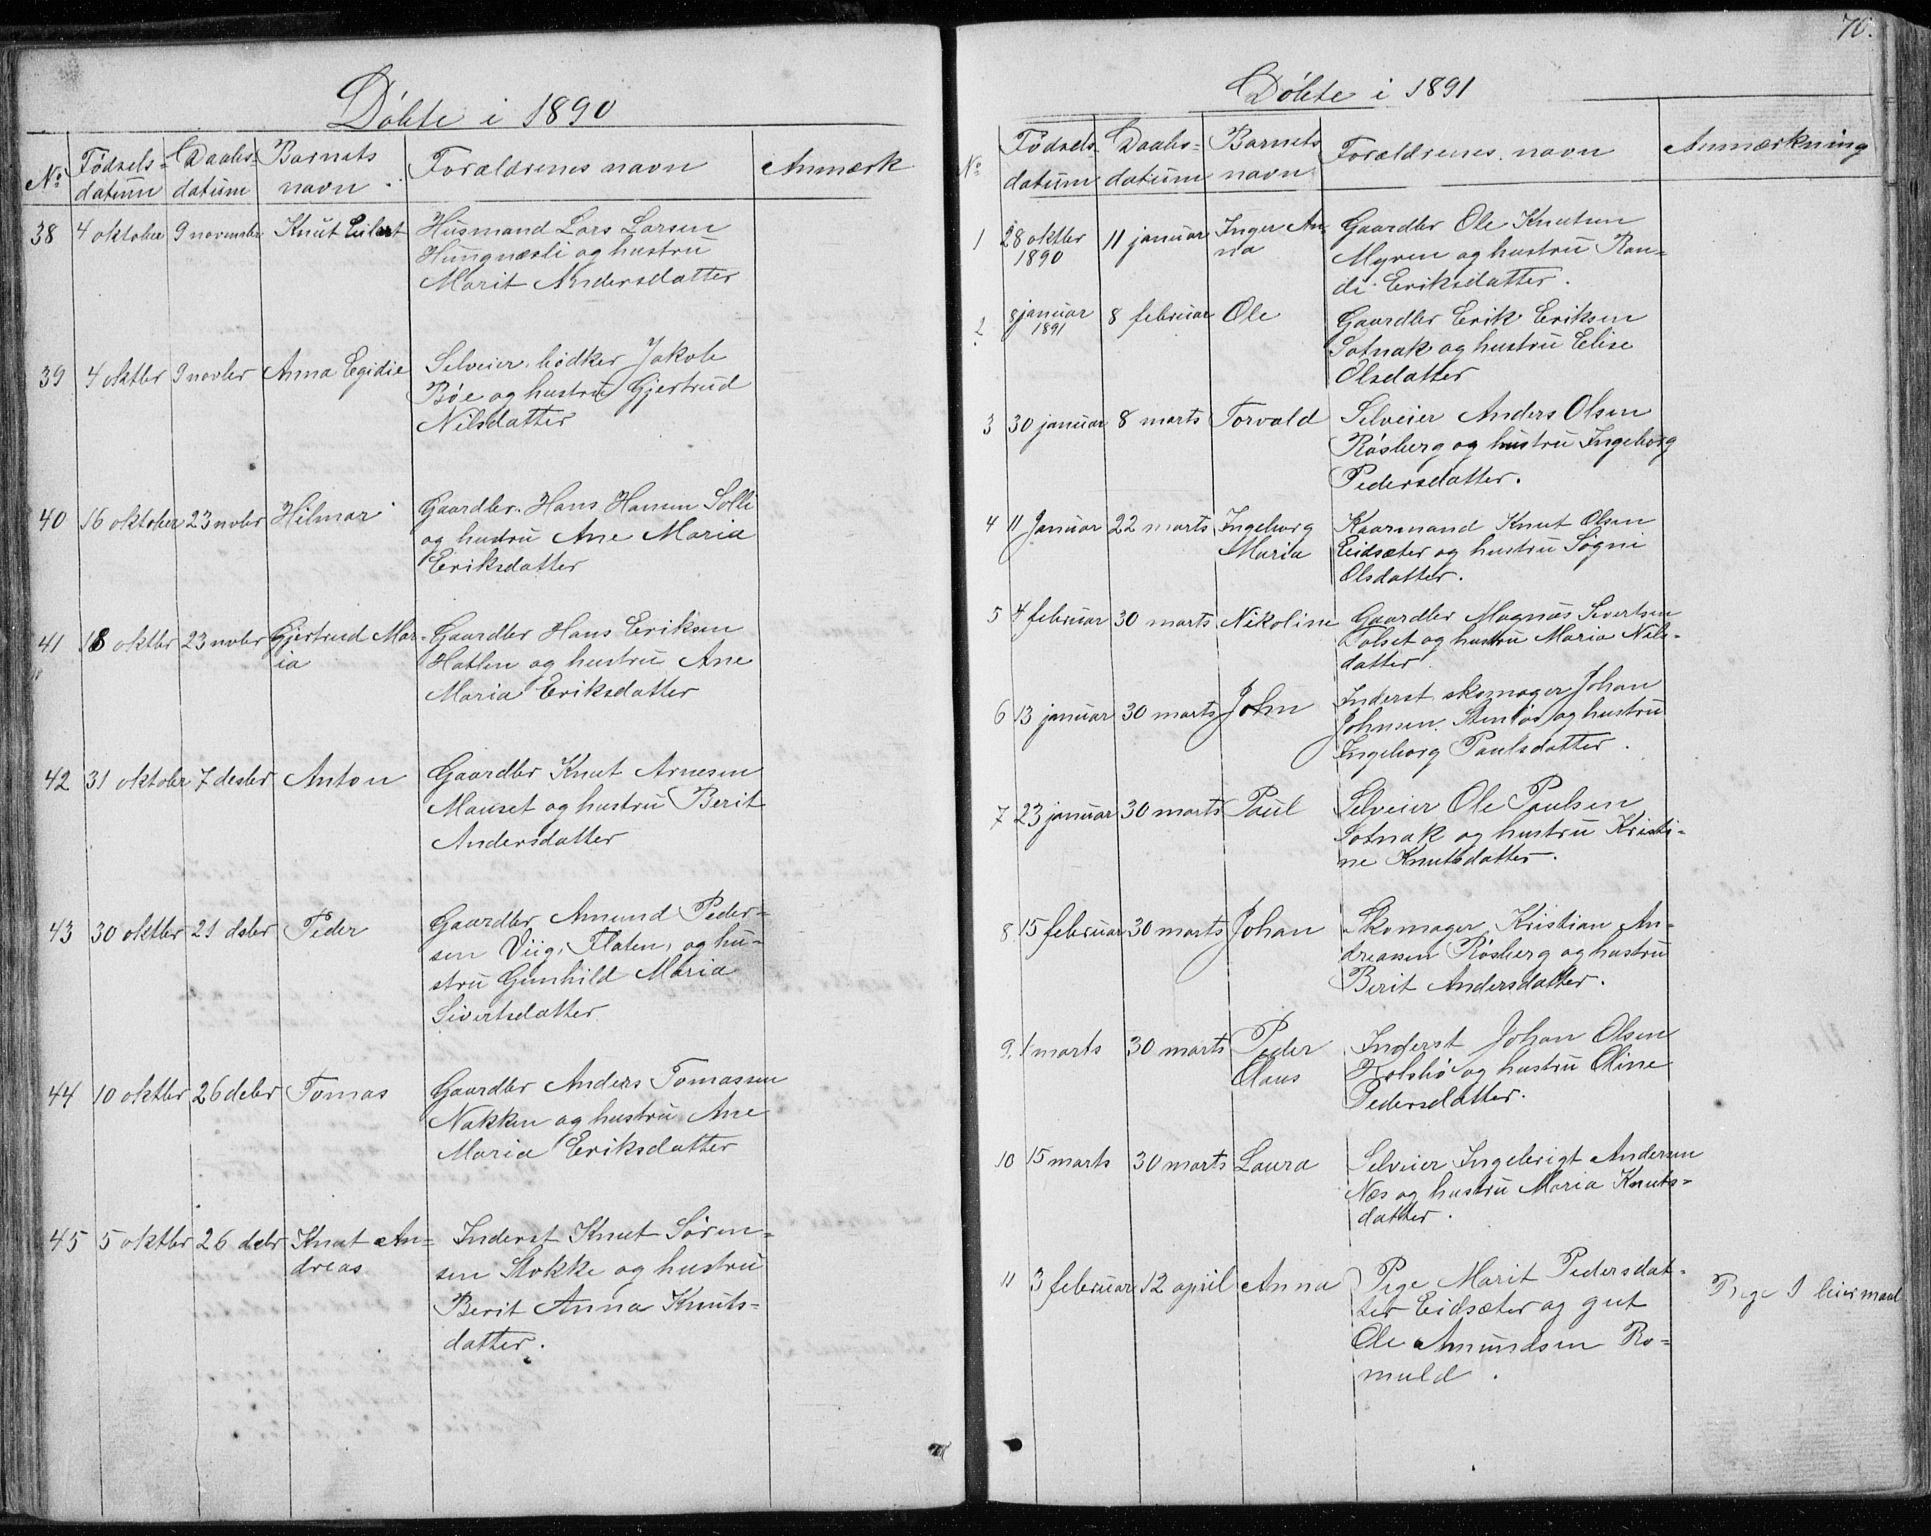 Döbte i 1890
No Fødsels- Daabs- Barnets Forældrenes navn Anmærk
datum datum navn
38 4 oktober 9 november Knut Eilert Husmand Lars Larsen
Hungnæsli og hustru
Marit Andersdatter
39 4 oktbr 9 novbr Anna Egidie Selveier, bødker Jakob
Bøe og hustru Gjertrud
Nilsdatter
40 16 oktober 23 nobr Hilmar Gaardbr. Hans Hansen Solli
og hustru Ane Maria
Eriksdatter
41 18 oktbr 23 nobr Gjertrud Mar- Gaardbr Hans Eriksen
ia Hatlen og hustru Ane
Maria Eriksdatter
42 31 oktober 7 desbr Anton Gaardbr Knut Arnesen
Mauset og hustru Berit
Andersdatter
43 30 oktbr 21 dsbr Peder Gaardbr Amund Peder-
sen Viig, Flaten, og hu-
stru Gunhild Maria
Sivertsdatter
44 10 oktbr 26 debr Tomas Gaardbr Anders Tomassen
Nakken og hustru Ane
Maria Eriksdatter
45 5 oktbr 26 debr Knut An- Inderst Knut Sören-
dreas sen Stokke og hustru
Berit Anna Knuts-
datter.
70.
Döbte i 1891
No Fødsels- Daabs- Barnets Forældrenes navn Anmærkning
datum datum navn
1 28 oktbr 11 januar Inger An- Gaardbr Ole Knutsen
1890 na Myren og hustru Ran-
di Eriksdatter.
2 8 januar 8 februar Ole Gaardbr Erik Eriksen
1891 Sotnak og hustru Elise
Olsdatter
3 30 januar 8 marts Torvald Selveier Anders Olsen
Røsberg og hustru Ingeborg
Pedersdatter.
4 11 Januar 22 marts Ingeborg Kaarmand Knut Olsen
Maria Eidsæter og hustru Søgni
Olsdatter.
5 4 februar 30 marts Nikoline Gaardbr Magnus Sivertsen
Talset og hustru Maria Nils-
datter
6 13 januar 30 marts John Inderst skomager Johan
Johnsen Stenløs og hustru
Ingeborg Paulsdatter.
7 23 januar 30 marts Paul Selveier Ole Paulsen
Sotnak og hustru Kristi-
ne Knutsdatter.
8 15 februar 30 marts Johan Skomager Kristian An-
dreassen Røsberg og hustru
Berit Andersdatter.
9 1 marts 30 marts Peder Inderst Johan Olsen
Olaus Rolsbø og hustru Oline
Pedersdatter.
10 15 marts 30 marts Laura Selveier Ingebrigt Andersen
Næs og hustru Maria Knuts-
datter.
11 3 februar 12 april Anna Pige Marit Pedersdat-
ter Eidsæter og gut Pige 1 leiermaal
Ole Amundsen Ro-
muld.